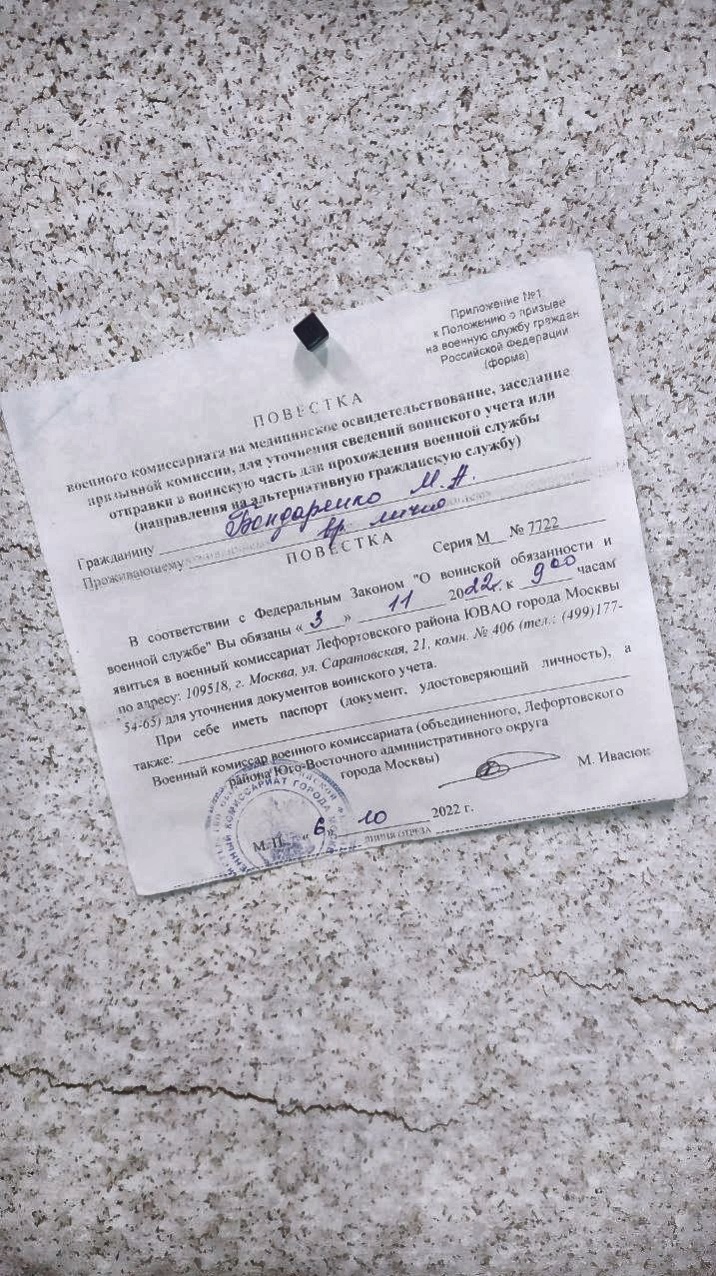 Приложение №1
к Положению о призыве
на военную службу граждан
Российской Федерации
(форма)
ПОВЕСТКА
военного комиссариата на медицинское освидетельствование, заседание
призывной комиссии, для уточнения сведений воинского учета или
отправки в воинскую часть для прохождения военной службы
(направления на альтернативную гражданскую службу)
Гражданину Бондаренко М.А.
Проживающему вр. лично
ПОВЕСТКА Серия М № 7722
В соответствии с Федеральным Законом "О воинской обязанности и
военной службе" Вы обязаны «3» 11 2022г. к 9 00 часам
явиться в военный комиссариат Лефортовского района ЮВАО города Москвы
по адресу: 109518, г. Москва, ул. Саратовская, 21, комн. № 406 (тел.: (499)177-
54-65) для уточнения документов воинского учета.
При себе иметь паспорт (документ, удостоверяющий личность), а
также:
Военный комиссар военного комиссариата (объединенного, Лефортовского
района Юго-Восточного административного округа
города Москвы) М. Ивасюк
М. П. «6» 10 2022 г.
линия отреза
ВОЕННЫЙ КОМИССАРИАТ ГОРОДА